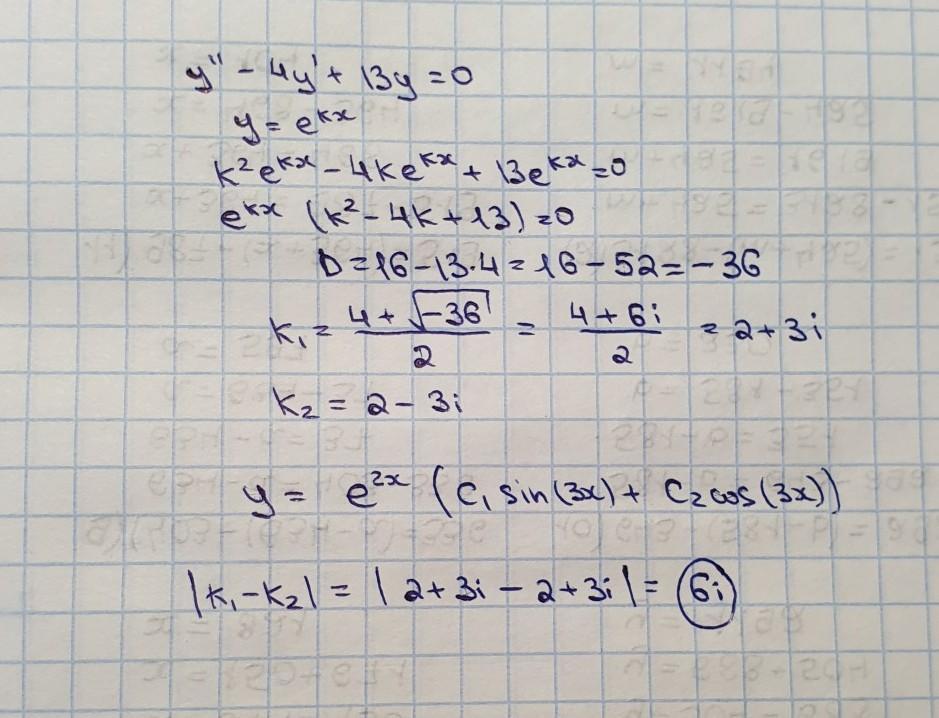 y'' - 4y' + 13y = 0
y = e^{kx}
k^2 e^{kx} - 4ke^{kx} + 13e^{kx} = 0
e^{kx} (k^2 - 4k + 13) = 0
D = 16 - 13·4 = 16 - 52 = -36
k_1 = \frac{4 + \sqrt{-36}}{2} = \frac{4 + 6i}{2} = 2 + 3i
k_2 = 2 - 3i
y = e^{2x} (C_1 sin(3x) + C_2 cos(3x))
|k_1 - k_2| = |2 + 3i - 2 + 3i| = 6i